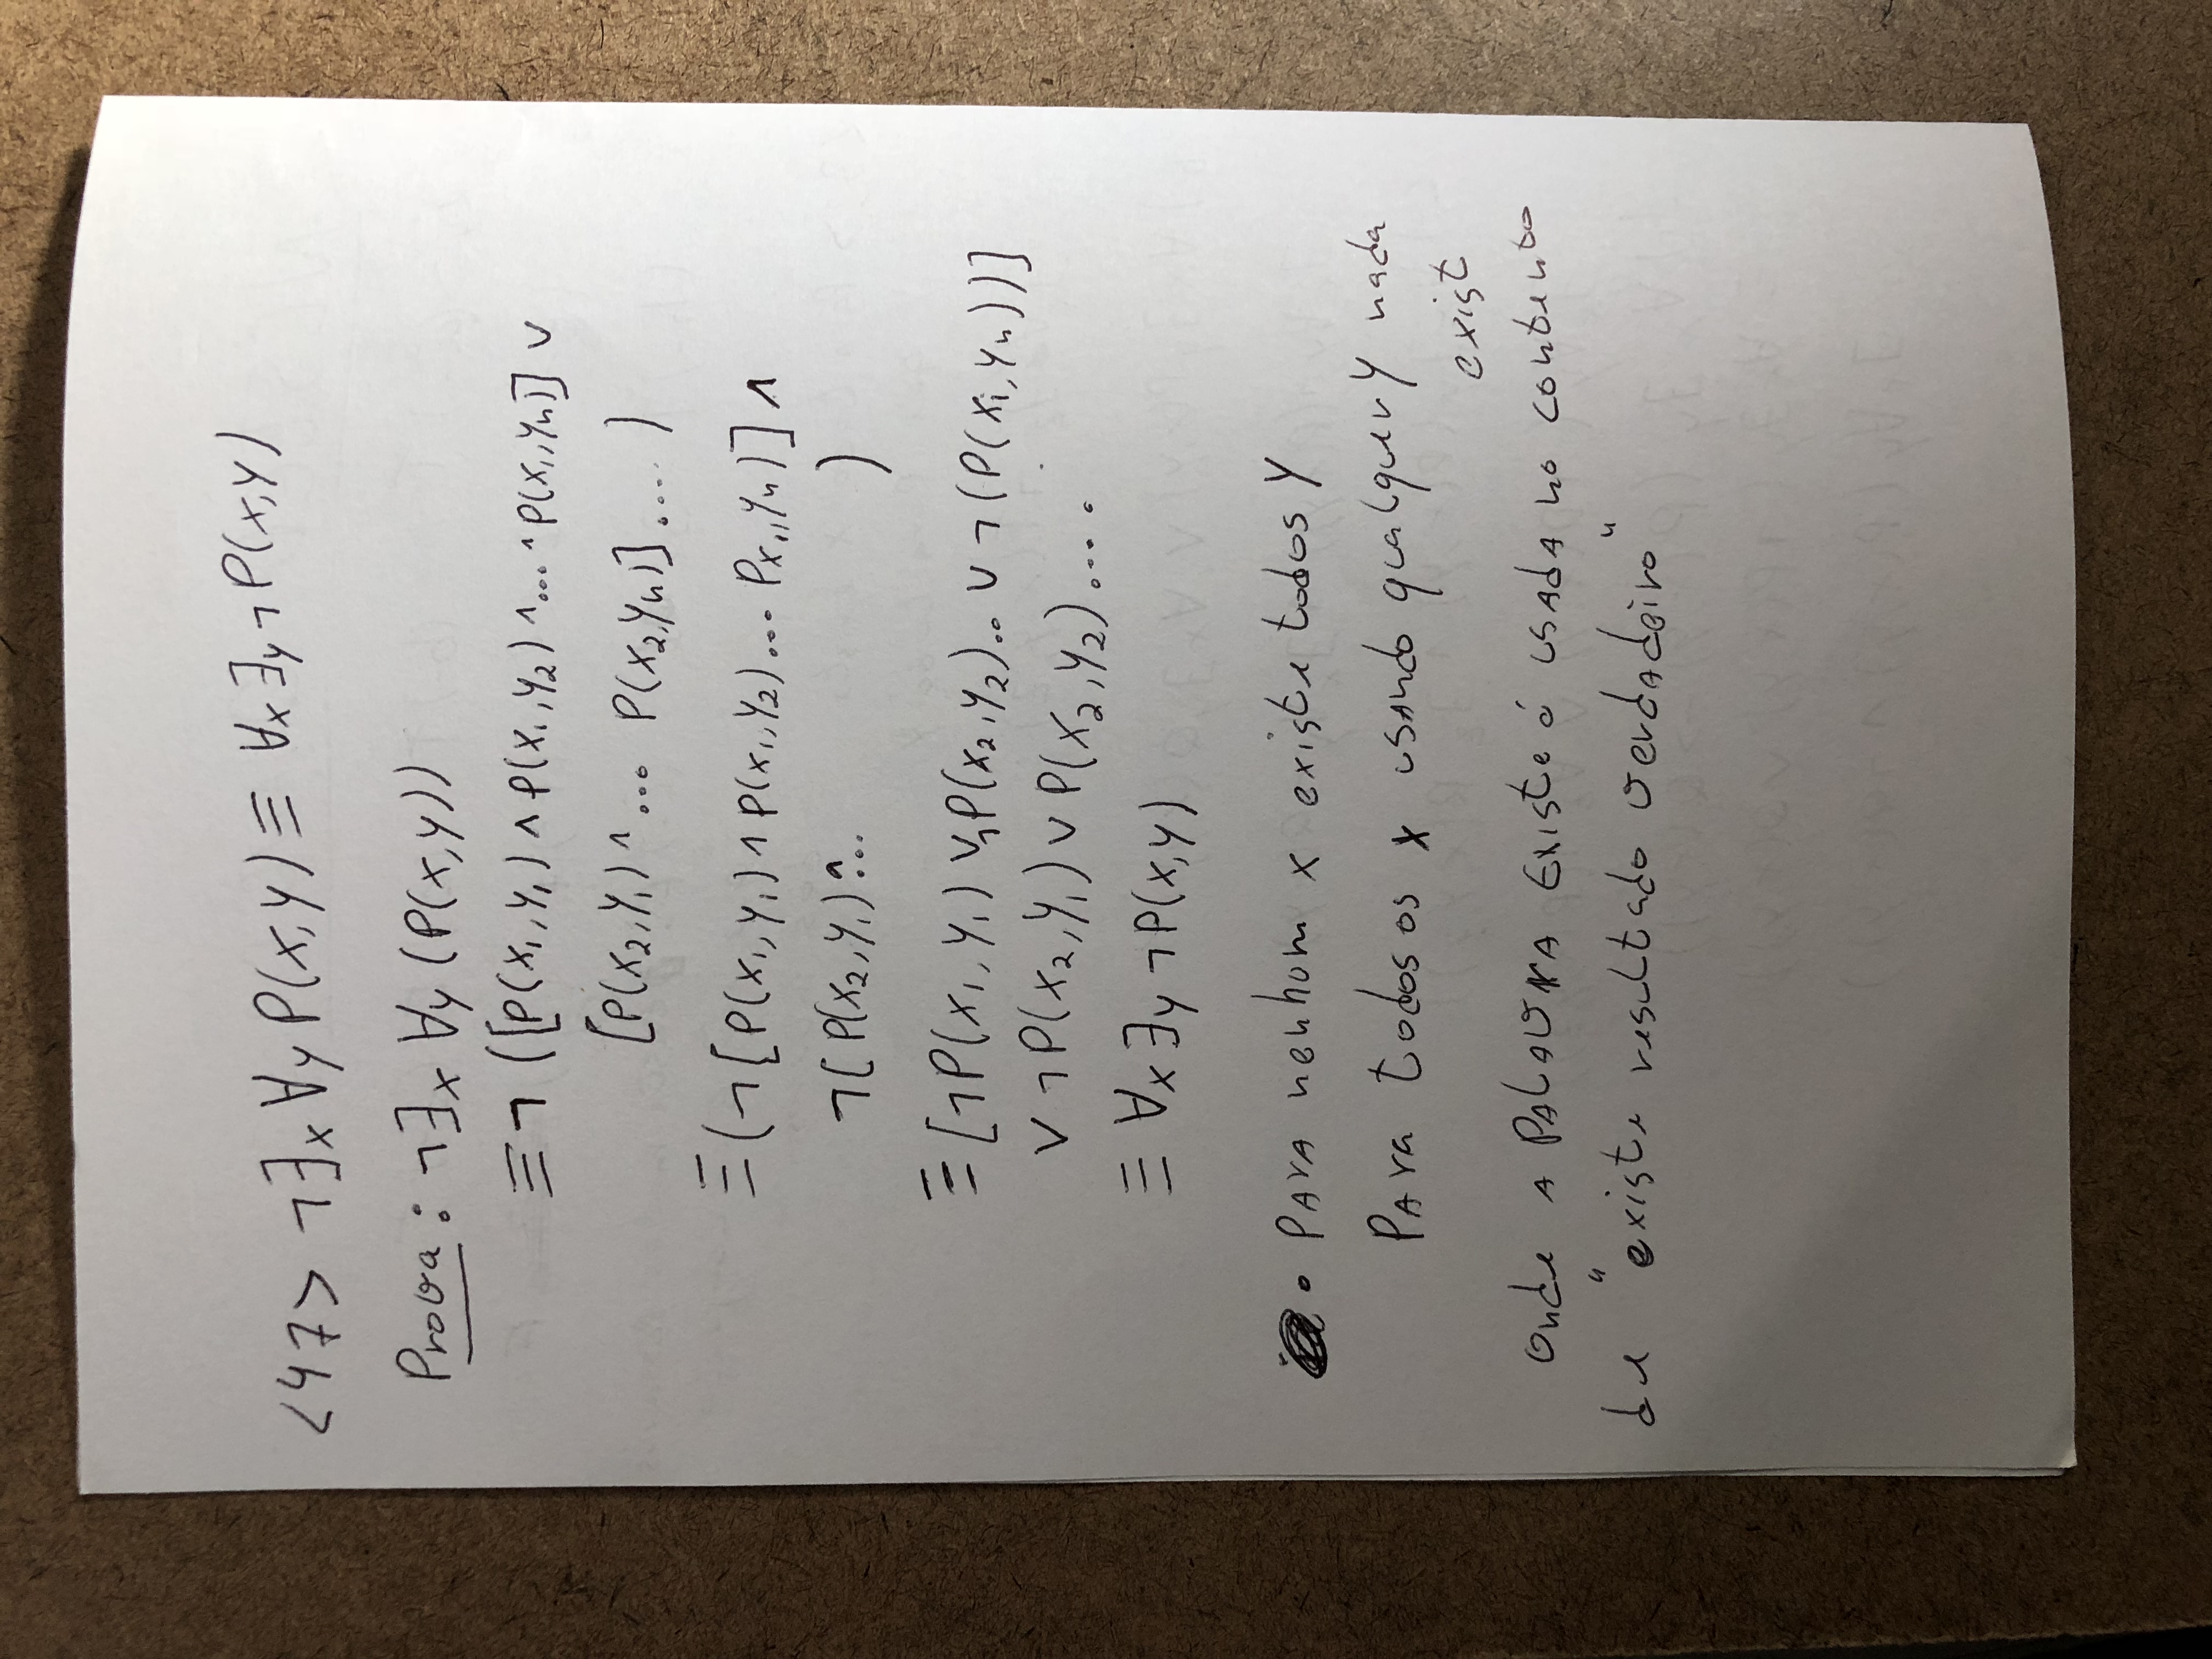 <47> ¬∃x ∀y P(x,y) ≡ ∀x ∃y ¬P(x,y)
Prova: ¬∃x ∀y (P(x,y))
≡ ¬ ([P(x₁,y₁) ∧ P(x₁,y₂) ∧ ... ∧ P(x₁,yn)] ∨
[P(x₂,y₁) ∧ ... P(x₂,yn)] .... )
≡ (¬[P(x₁,y₁) ∧ P(x₁,y₂) ... Px₁,,yn)] ∧
¬[P(x₂,y₁) ∧ ... )
≡ [¬P(x₁,y₁) ∨¬P(x₂,y₂).. ∨ ¬(P(xi,yn))]
∨ ¬P(x₂,y₁) ∨ P(x₂,y₂) ....
≡ ∀x ∃y ¬P(x,y)
• PARA nenhum x existe todos y
PARA todos os x usando qualquer y nada
exist
Onde A PALAVRA Existe é USADA no contento
de "existe resultado verdadeiro"